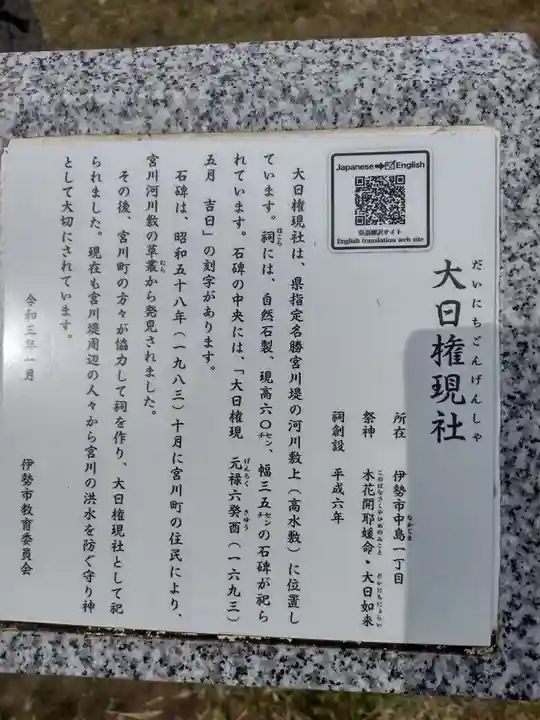 大日権現社
だいにちごんげんしゃ
所在　伊勢市中島一丁目
なかじま
祭神　木花開耶媛命・大日如来
このはなさくやひめのみこと　だいにちにょらい
祠創設　平成六年
Japanese→English
英語翻訳サイト
English translation web site
大日権現社は、県指定名勝宮川堤の河川敷上（高水敷）に位置し
ています。祠には、自然石製、現高六〇㌢、幅三五㌢の石碑が祀ら
ほこら
れています。石碑の中央には、「大日権現　元禄六癸酉（一六九三）
げんろく　きゆう
五月　吉日」の刻字があります。
石碑は、昭和五十八年（一九八三）十月に宮川町の住民により、
宮川河川敷の草叢から発見されました。
むら
その後、宮川町の方々が協力して祠を作り、大日権現社として祀
られました。現在も宮川堤周辺の人々から宮川の洪水を防ぐ守り神
として大切にされています。
令和三年一月
伊勢市教育委員会